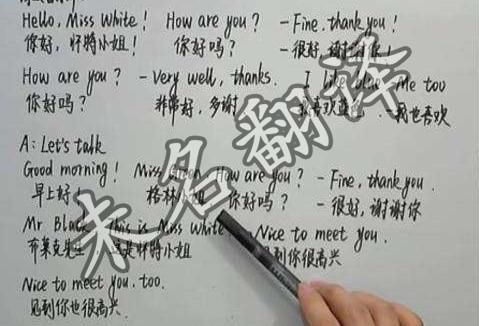 Hello, Miss White! How are you? - Fine, thank you!
你好，怀特小姐！ 你好吗？ - 很好，谢谢你！
How are you? - Very well, thanks. I like blue. Me too
你好吗？ 非常好，多谢 我喜欢蓝色 - 我也喜欢
A: Let's talk
Good morning! Miss Green, How are you? - Fine, thank you.
早上好！ 格林小姐 你好吗？ - 很好，谢谢你
Mr Black, This is Miss White Nice to meet you.
布莱克先生 这是怀特小姐 见到你很高兴
Nice to meet you, too.
见到你也很高兴.
未名翻译